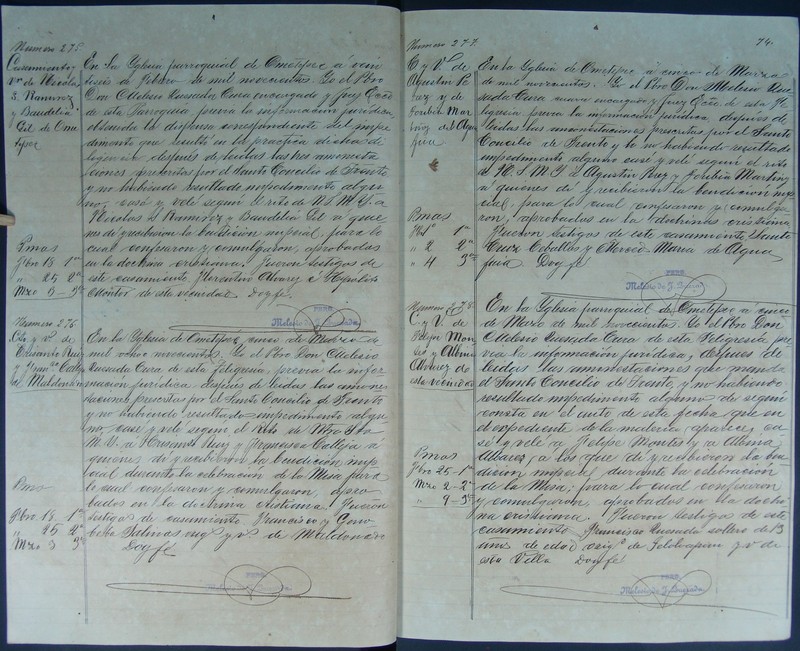 Numero 275.
Casamiento y
vn de Nicolas
S. Ramirez
y Baudelia
Gil de Ome
tepec
En la Yglesia parroquial de Ometepec á vein
tiseis de Febrero de mil novecientos. Yo el Pbro
Don Melesio Quesada Cura encargado y Juez Ecco
de esta Parroquia previa la informacion juridica,
obtenida la dispensa correspondiente del impe
dimento que resultó en la practica
ligencia despues de leidas las tres amonesta
ciones prescritas por el Santo Concilio de Trento
y no habiendo resultado impedimento algu
no, casé y velé segun el rito de N.S.M.Y. á
Nicolas S Ramirez y Baudelia Gil á quie
nes dí y recibieron la bendicion nupcial, para lo
cual confesaron y comulgaron, aprobados
en la doctrina cristiana. Fueron testigos de
este casamiento Florentino Alvarez é Hipolito
Montor de esta vecindad. Doy fé.
Pmas
Fbro 18 1a
" 25 2a
Mzo 3 3a
PBRO.
Melesio de J. Quesada
Numero 276.
C. y V. de
Ruiz
y Franca Calleja
de Maldonado
En la Yglesia de Ometepec, cinco de Marzo de
mil novecientos. Yo el Pbro Don Melesio
Quesada Cura de esta Feligresia, previa la infor
macion juridica despues de leidas las amones
taciones prescritas por el Santo Concilio de Trento
y no habiendo resultado impedimento algu
no, casé y velé segun el Rito de Ntra Sta
M. Y. á Cresencio Ruiz y Francisca Calleja á
quienes dí y recibieron la bendicion nup
cial durante la celebracion de la Misa para
lo cual confesaron y comulgaron, apro
bados en la doctrina cristiana. Fueron
testigos de casamiento Francisco y
Salinas orig y vs de Maldonado
Doy fé
Pmas
Fbro 18 1a
" 25 2a
Mzo 3 3a
PBRO.
Melesio de J. Quesada
74.
Numero 277.
C y V. de
Agustin Pe
raz y de
Toribia Mar
tinez del Agua
fria
En la Yglesia de Ometepec á cinco de Marzo
de mil novecientos. Yo el Pbro Don Melesio Que
sada Cura encargado y Juez Ecco. de esta Fe
ligresia previa la informacion juridica, despues de
leidas las amonestaciones prescritas por el Santo
Concilio de Trento y no habiendo resultado
impedimento alguno casé y velé segun el rito
de N. S M Y á Agustin y Toribia Martinez
á quienes dí y recibieron la bendicion nup
cial, para lo cual confesaron y comulga
ron, aprobados en la doctrina cristiana.
Fueron testigos de este casamiento Santa
Cruz Ceballos y Maria de Agua
fria Doy fé
Pmas
1a
" 2 2a
" 4 3a
PBRO.
Melesio de J. Quesada
Numero 278.
C. y V. de
Felipe Mon
tes y Albina
Alvarez de
esta vecindad
En la Yglesia parroquial de Ometepec á cinco
de Marzo de mil novecientos. Yo el Pbro Don
Melesio Quesada Cura de esta Feligresia pre
via la informacion juridica, despues de
leidas las amonestaciones que manda
el Santo Concilio de Trento, y no habiendo
resultado impedimento alguno segun
consta en el auto de esta fecha que en
el expediente de la materia aparece, ca
sé y velé a Felipe Montes y a Albina
Alvarez á los que dí y recibieron la ben
dicion nupcial durante la celebracion
de la Misa; para lo cual confesaron
y comulgaron, aprobados en la doctri
na cristiana. Fueron testigos de este
casamiento Francisco Quesada soltero de 13
años de edad orig. de y v. de
esta Villa Doy fé
Pmas
Fbro 25 1a
Mzo 2 2a
" 4 3a
PBRO.
Melesio de J. Quesada